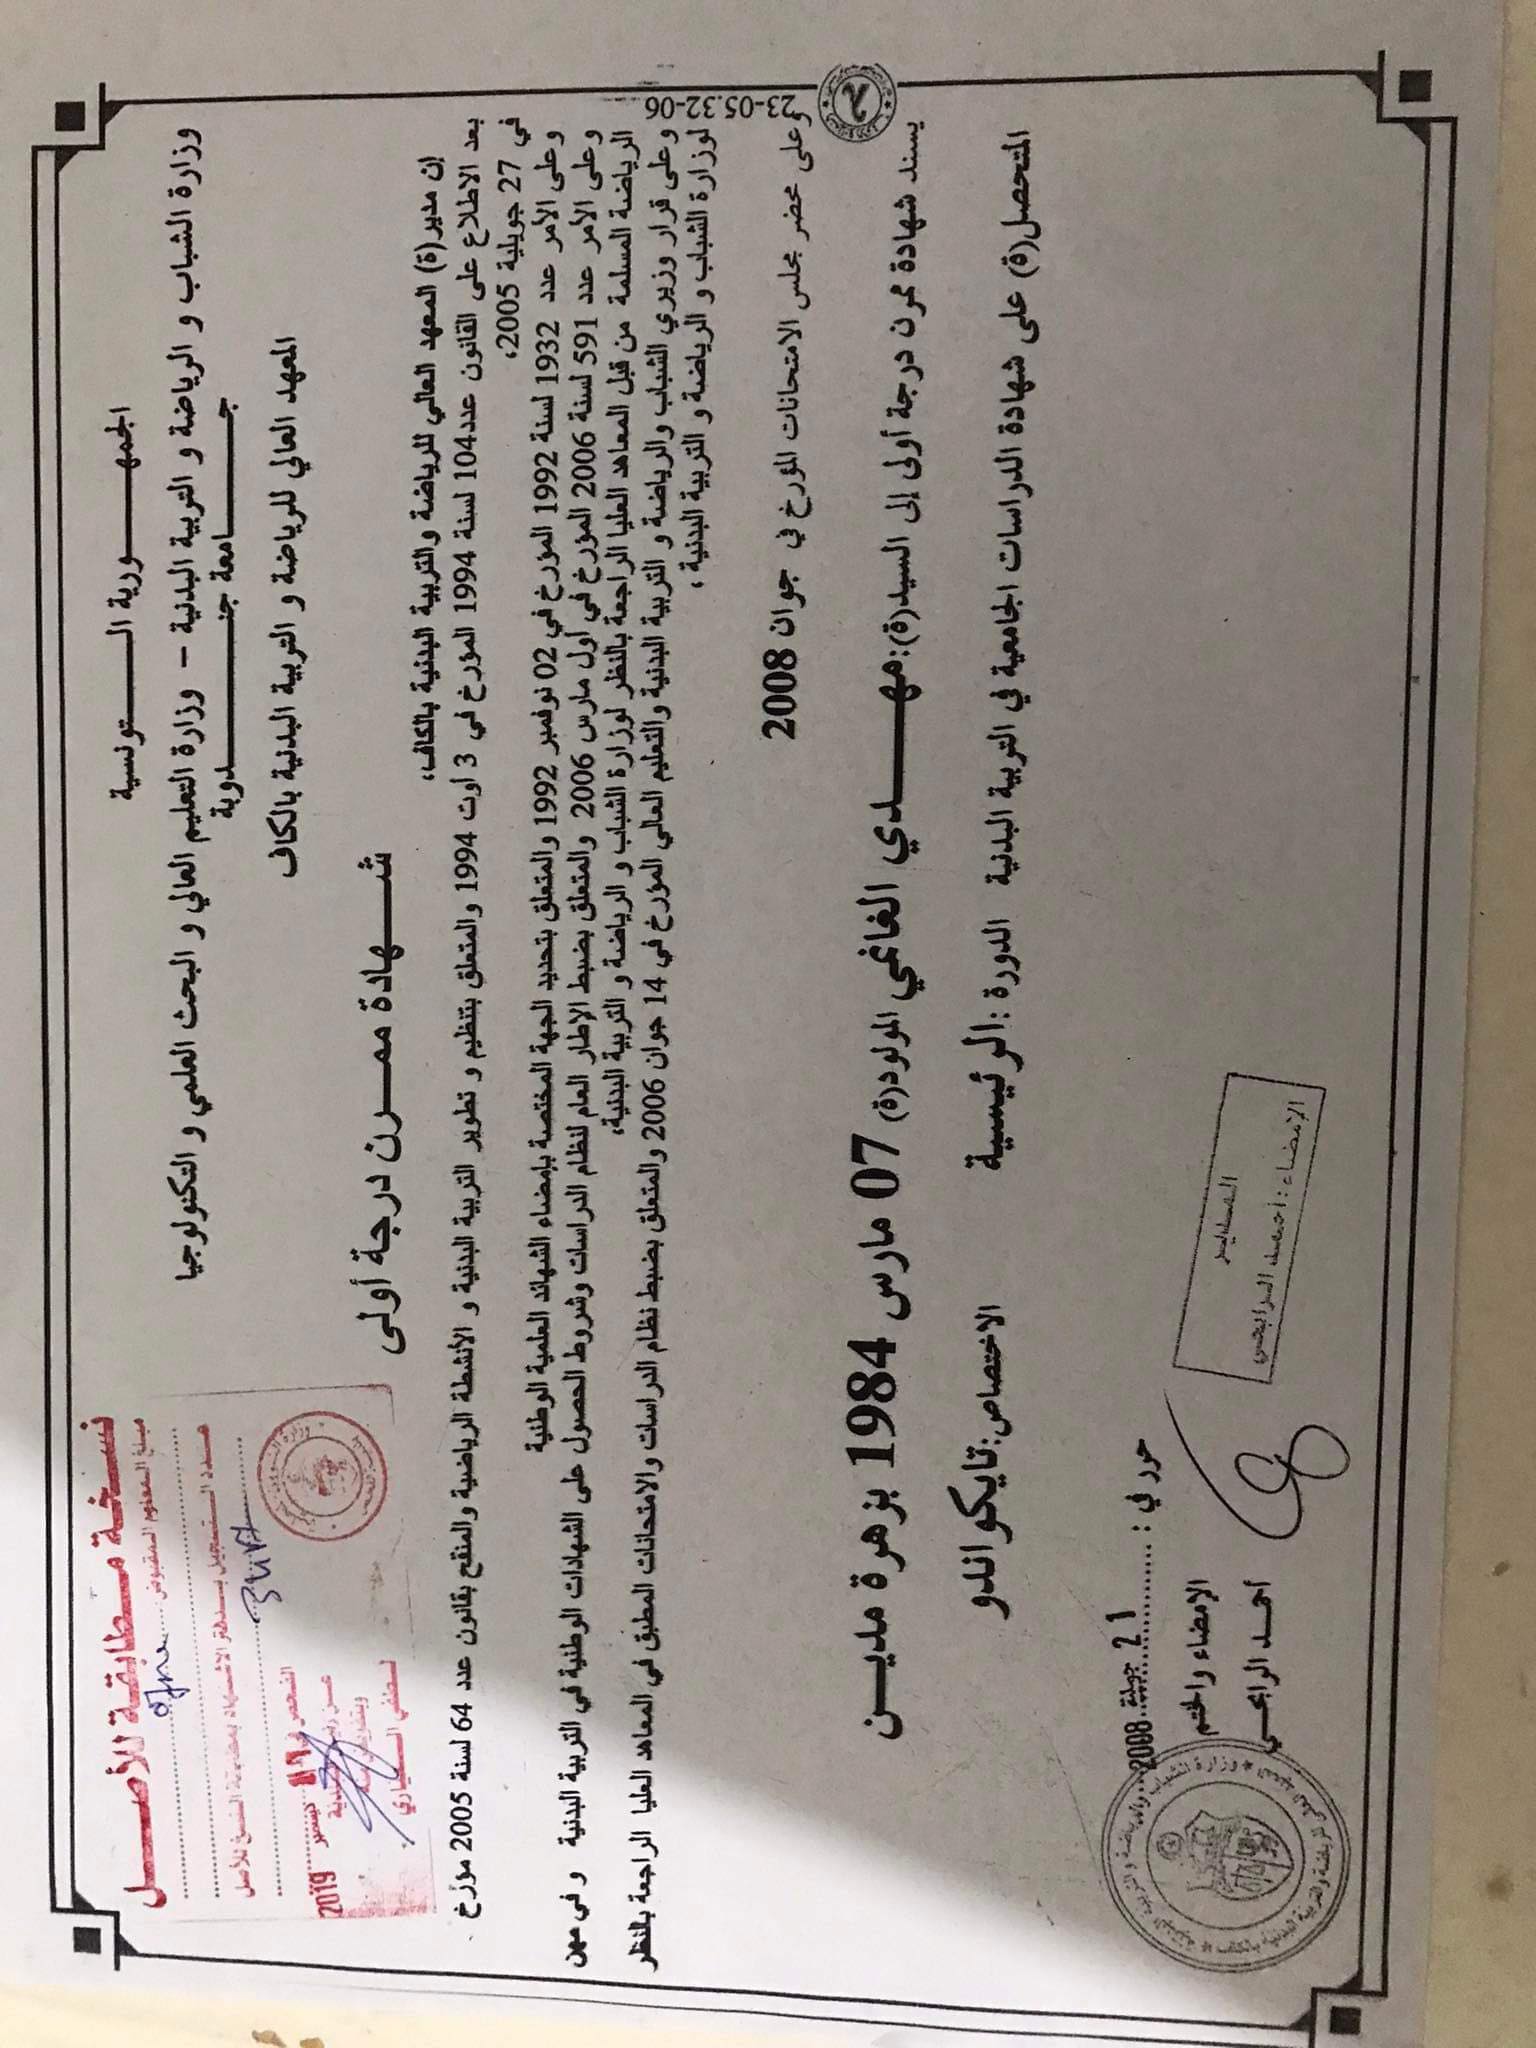 الجمهـــورية الـــتونسية
وزارة الشباب و الرياضة و التربية البدنية – وزارة التعليم العالي و البحث العلمي و التكنولوجيا
جـــامعة جنـــدوبة
المعهد العالي للرياضة و التربية البدنية بالكاف
نسخة مطابقة للأصـــل
مبلغ المعلوم المقبوض
عدد التسجيل بدفتر الاشهاد بمطابقة النسخ للأصل
ديسمبر 2019
شـــهادة ممـــرن درجة أولى
إن مدير(ة) المعهد العالي للرياضة والتربية البدنية بالكاف،
بعد الاطلاع على القانون عدد104 لسنة 1994 المؤرخ في 3 اوت 1994 والمتعلق بتنظيم و تطوير التربية البدنية و الأنشطة الرياضية والمنقح بقانون عدد 64 لسنة 2005 مؤرخ
في 27 جويلية 2005،
وعلى الأمر عدد 1932 لسنة 1992 المؤرخ في 02 نوفمبر 1992 والمتعلق بتحديد الجهة المختصة بإمضاء الشهائد العلمية الوطنية
وعلى الأمر عدد 591 لسنة 2006 المؤرخ في أول مارس 2006 والمتعلق بضبط الإطار العام لنظام الدراسات وشروط الحصول على الشهادات الوطنية في التربية البدنية و في مهن
الرياضة المسلمة من قبل المعاهد العليا الراجعة بالنظر لوزارة الشباب و الرياضة و التربية البدنية،
وعلى قرار وزيري الشباب والرياضة و التربية البدنية والتعليم العالي المؤرخ في 14 جوان 2006 والمتعلق بضبط نظام الدراسات والامتحانات المطبق في المعاهد العليا الراجعة بالنظر
لوزارة الشباب و الرياضة و التربية البدنية ،
23-05.32-06
وعلى محضر مجلس الامتحانات المؤرخ في جوان 2008
يسند شهادة ممرن درجة أولى إلى السيد(ة): مهـــدي الغانمي المولود(ة) 07 مارس 1984 بزهرة مديـــن
المتحصل(ة) على شهادة الدراسات الجامعية في التربية البدنية الدورة : الرئيسية الاختصاص: تايكواندو
حرر في : 21 جويلية 2008
الإمضاء والختم
أحمـد الرابحـي
المدير
الإمضاء : أحمد الرابحي